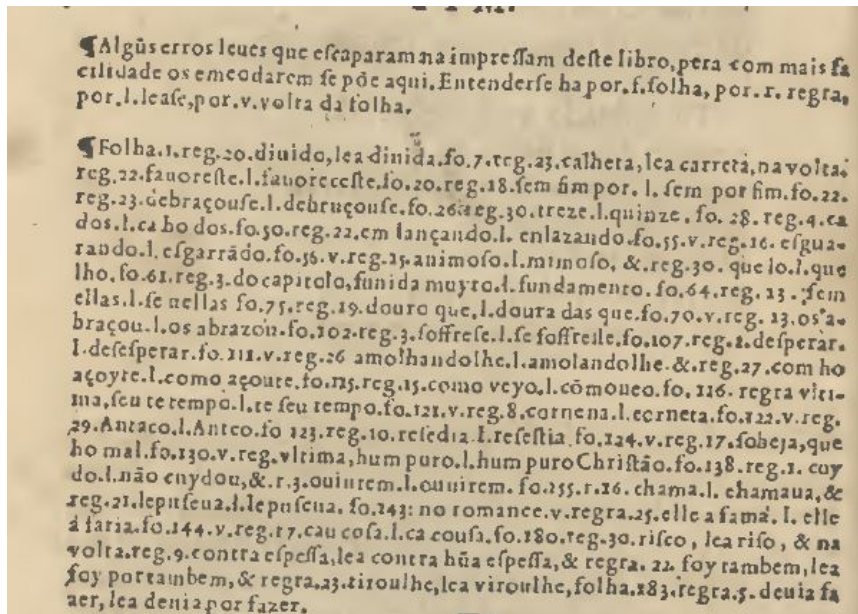 ¶Algũs erros leues que eſcaparam na impreſſam deſte libro, pera com mais fa
cilidade os emẽdarem ſe põe aqui. Entenderſe ha por. f. folha, por. r. regra,
por. l. leaſe, por. v. volta da folha.
¶Folha. 1. reg. 20. diuido, lea diuida. fo. 7. reg. 23. calheta, lea carreta, na volta.
reg. 22. fauoreſte. l. fauoreceſte. fo. 20. reg. 18. ſem fim por. l. ſem por fim. fo. 22.
reg. 23. debraçouſe. l. debruçouſe. fo. 26. reg. 30. treze. l. quinze. fo. 28. reg. 4. ca
dos. l. ca ho dos. fo. 50. reg. 22. em lançando. l. enlazando. fo. 55. v. reg. 16. eſgua-
rando. l. eſgarrãdo. fo. 56. v. reg. 25. animoſo. l. mimoſo, &. reg. 30. que lo. l. que
lho. fo. 61. reg. 3. do capitolo, funida muyto. l. fundamento. fo. 64. reg. 13. ſem
ellas. l. ſe nellas fo. 75. reg. 19. douro que, l. doura das que. fo. 70. v. reg. 13. os a-
braçou. l. os abrazou. fo. 102. reg. 3. ſoffreſe. l. ſe ſoffreſſe. fo. 107. reg. 1. deſperar.
l. deſeſperar. fo. 111. v. reg. 26 amolhandolhe. l. amolandolhe. &. reg. 27. com ho
açoyte. l. como açoute. fo. 115. reg. 15. como veyo. l. cõmoueo. fo. 116. regra vlti-
ma, ſeu te tempo. l. te ſeu tempo. fo. 121. v. reg. 8. cornena. l. corneta. fo. 122. v. reg.
29. Antaco. l. Anteo. fo 123. reg. 10. reſedia. l. reſeſtia. fo. 124. v. reg. 17. ſobeja, que
ho mal. fo. 130. v. reg. vltima, hum puro. l. hum puro Chriſtão. fo. 138. reg. 1. cuy
do. l. não cuydou, &. r. 3. ouuirem. l. ouuirem. fo. 255. r. 16. chama. l. chamaua, &
reg. 21. lepuſeua. l. lepuſeua. fo. 243: no romance. v. regra. 25. elle a fama. l. elle
a faria. fo. 144. v. reg. 17. cau coſa. l. ca couſa. fo. 180. reg. 30. riſco, lea riſo, & na
volta. reg. 9. contra eſpeſſa, lea contra hũa eſpeſſa, & regra. 22. foy tambem, lea
foy por tambem, & regra. 23. tiroulhe, lea viroulhe, folha. 183. regra. 5. deuia fa
zer, lea deuia por fazer.